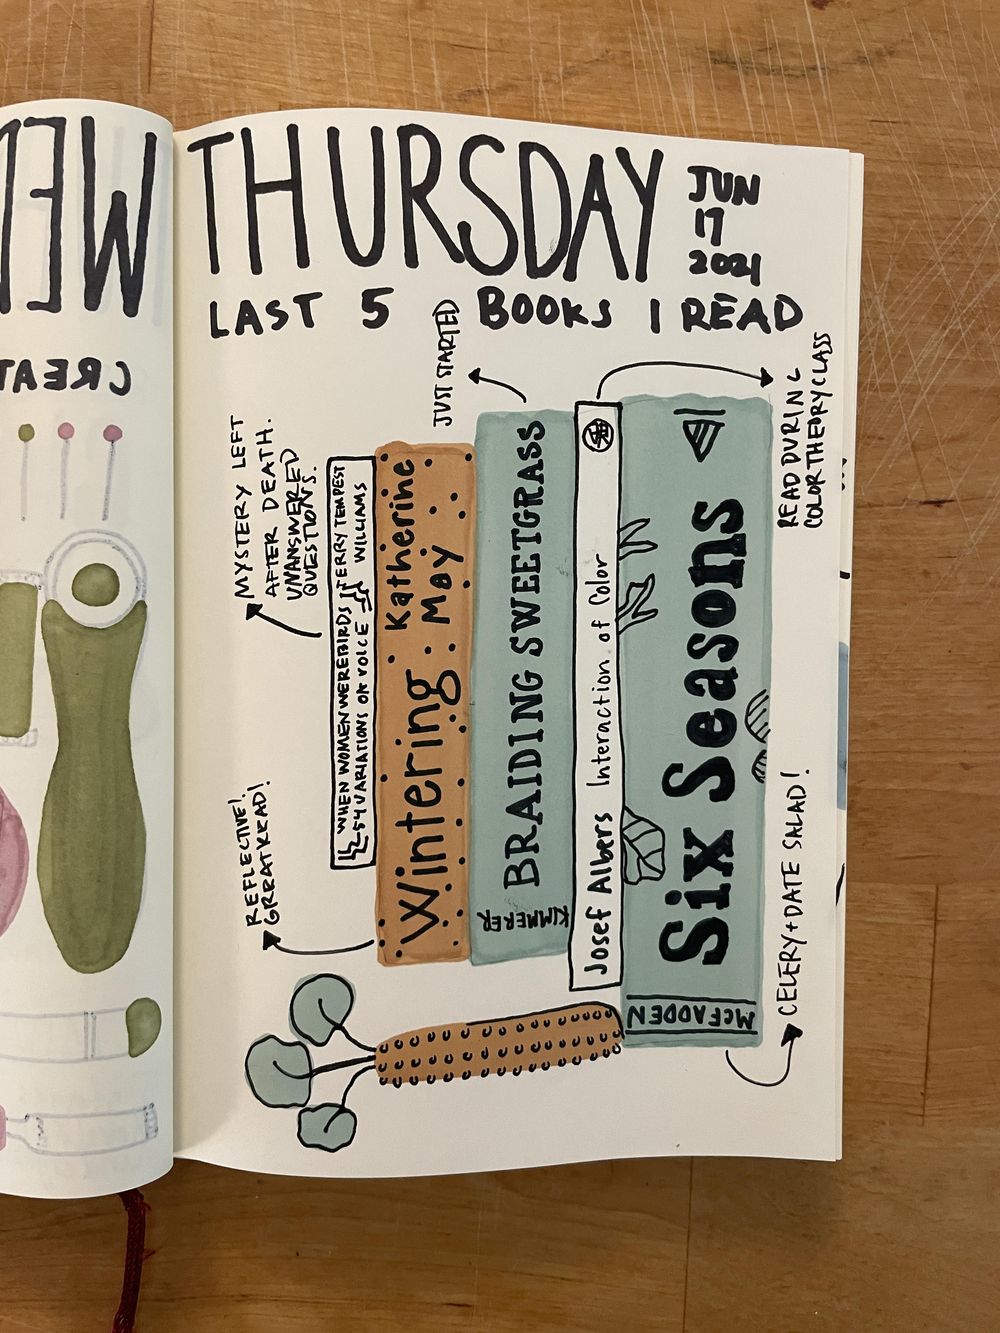 WED
CREAT
THURSDAY
JUN
17
2021
LAST 5 BOOKS I READ
JUST STARTED
MYSTERY LEFT
AFTER DEATH.
UNANSWERED
QUESTIONS.
READ DURING
COLOR THEORY CLASS
WHEN WOMEN WERE BIRDS
54 VARIATIONS ON VOICE
TERRY TEMPEST
WILLIAMS
Wintering
Katherine
May
BRAIDING SWEETGRASS
KIMMERER
Josef Albers Interaction of Color
Six Seasons
MCFADDEN
REFLECTIVE!
GREAT READ!
CELERY+DATE SALAD!